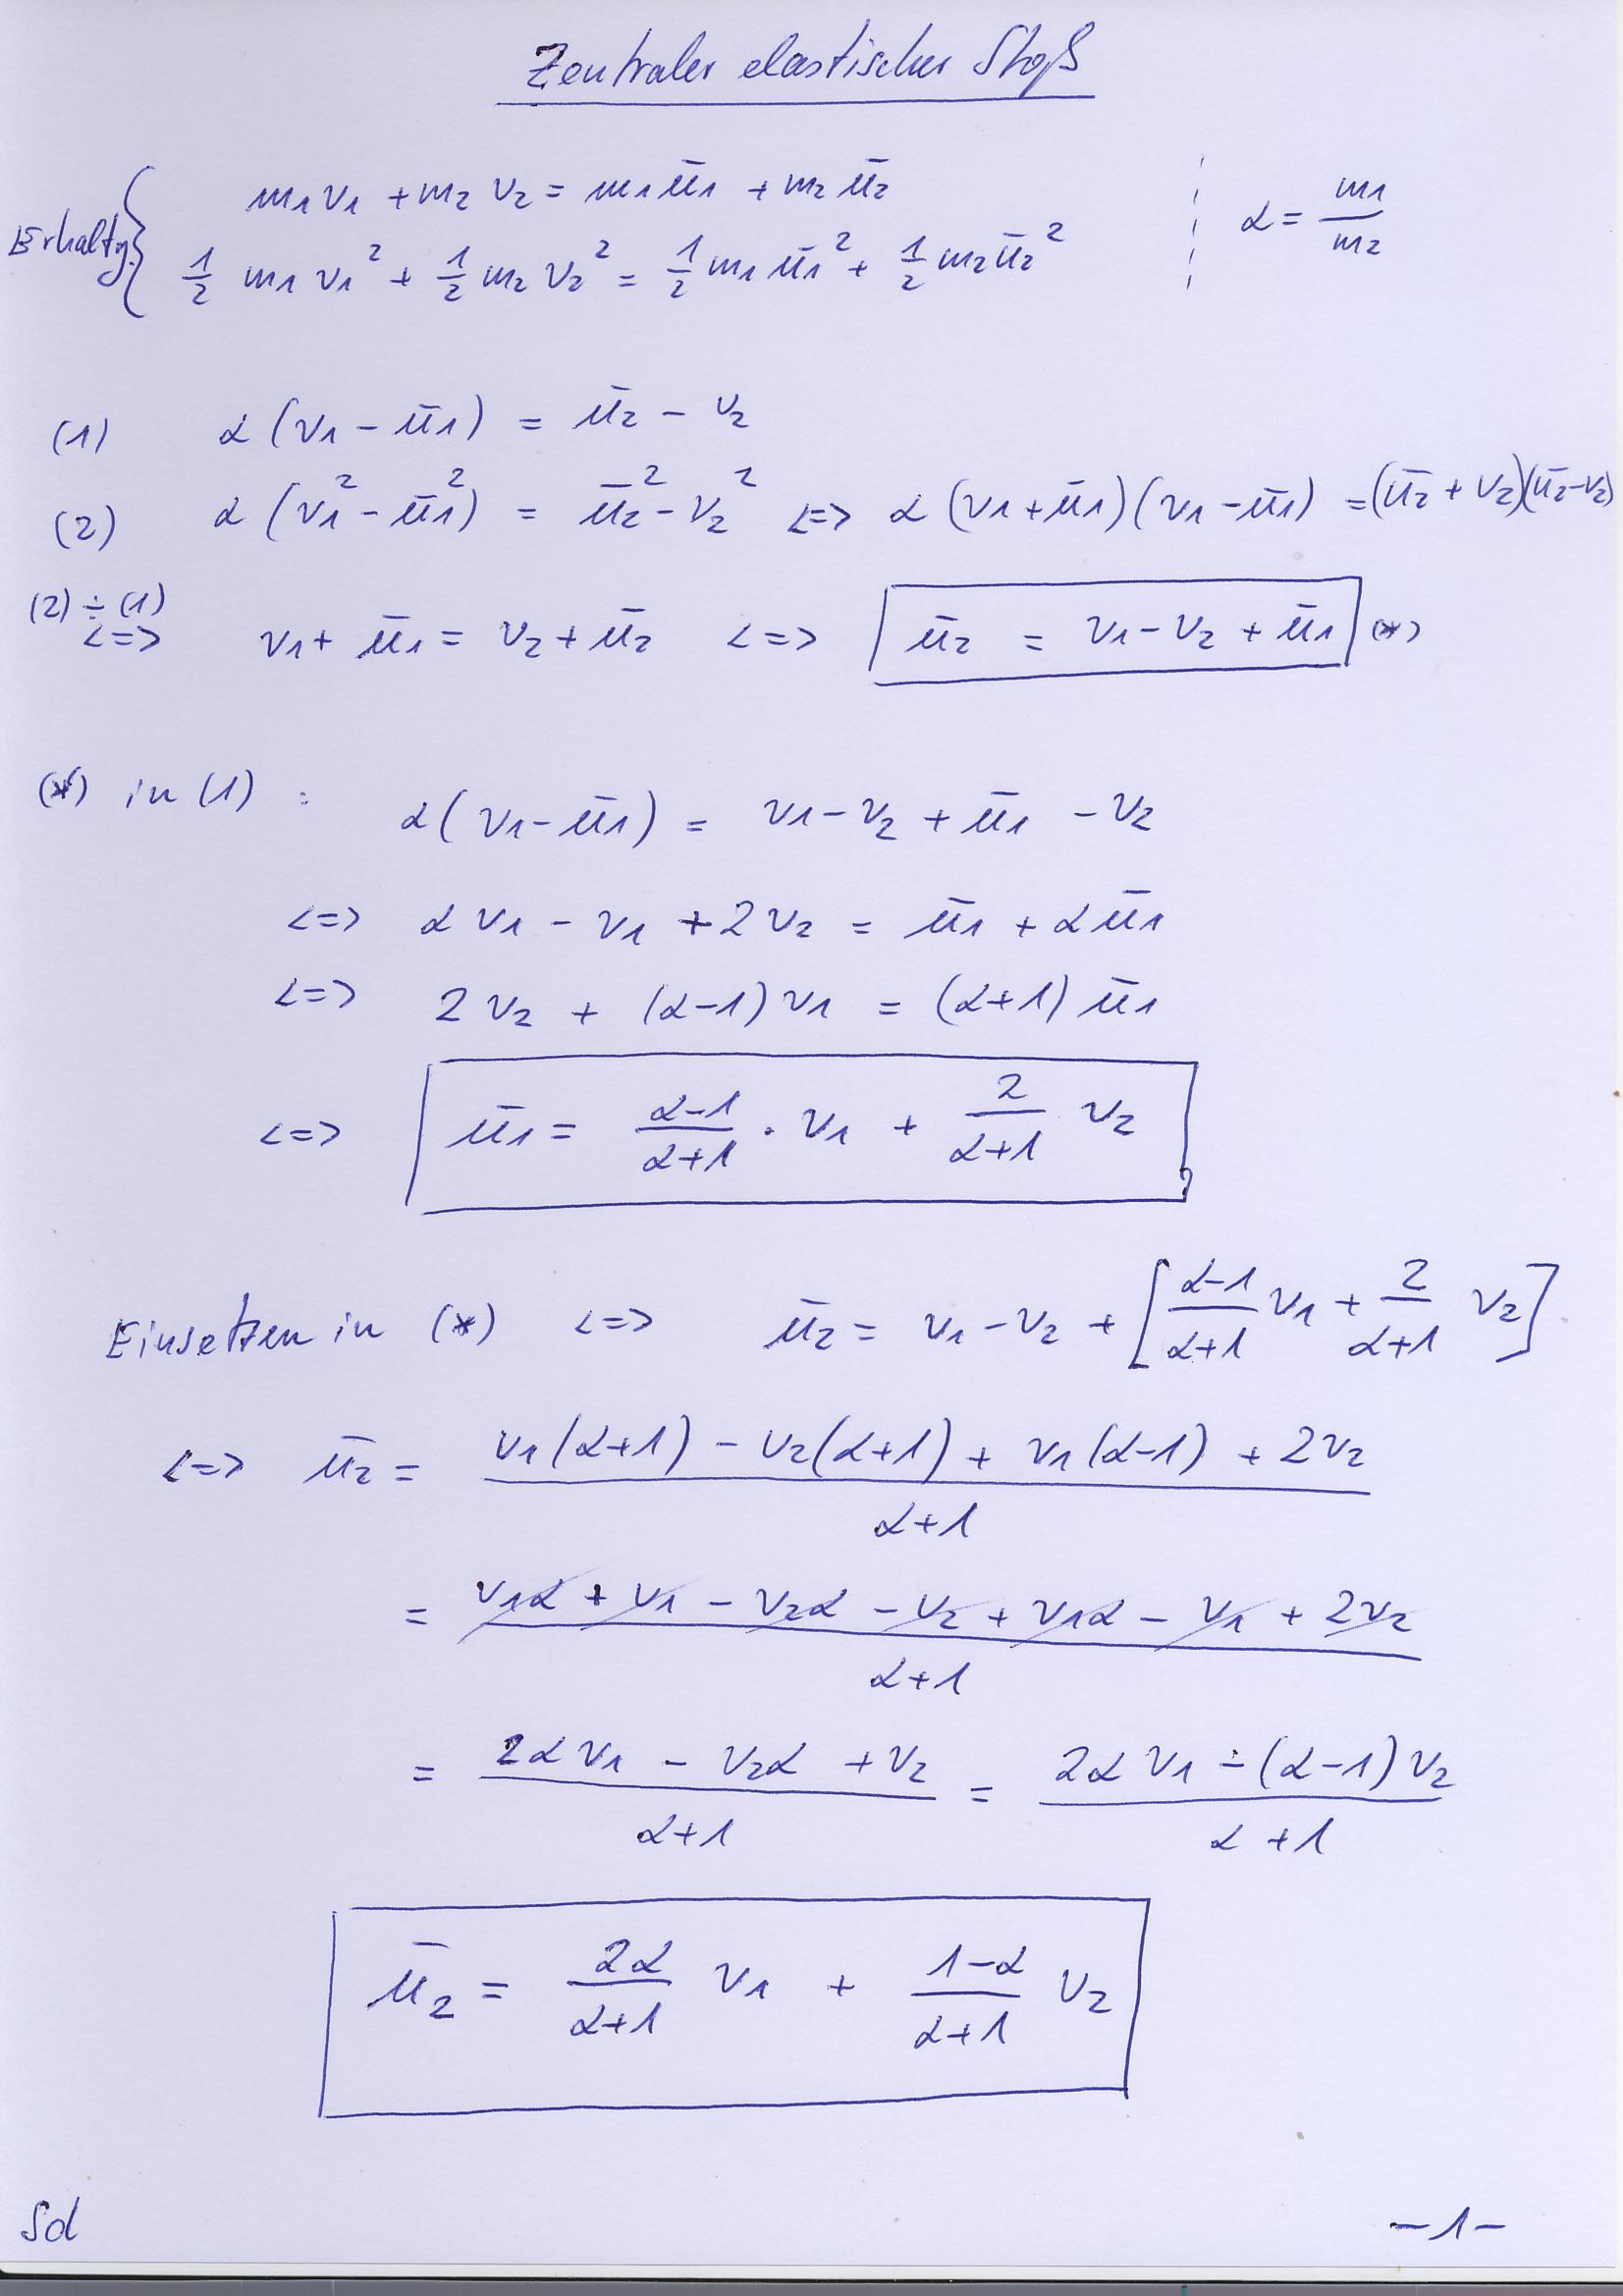 Zentraler elastischer Stoß
m₁v₁ + m₂v₂ = m₁ū₁ + m₂ū₂
α = m₁/m₂
Erhaltg.
½ m₁v₁² + ½ m₂v₂² = ½ m₁ū₁² + ½ m₂ū₂²
(1) α(v₁ - ū₁) = ū₂ - v₂
(2) α(v₁² - ū₁²) = ū₂² - v₂² <=> α(v₁ + ū₁)(v₁ - ū₁) = (ū₂ + v₂)(ū₂ - v₂)
(2) ÷ (1)
<=> v₁ + ū₁ = v₂ + ū₂ <=> ū₂ = v₁ - v₂ + ū₁ (*)
(*) in (1) : α(v₁ - ū₁) = v₁ - v₂ + ū₁ - v₂
<=> αv₁ - v₁ + 2v₂ = ū₁ + αū₁
<=> 2v₂ + (α-1)v₁ = (α+1)ū₁
<=> ū₁ = (α-1)/(α+1) · v₁ + 2/(α+1) v₂
Einsetzen in (*) <=> ū₂ = v₁ - v₂ + [(α-1)/(α+1) v₁ + 2/(α+1) v₂]
<=> ū₂ = (v₁(α+1) - v₂(α+1) + v₁(α-1) + 2v₂)/(α+1)
= (v₁α + v₁ - v₂α - v₂ + v₁α - v₁ + 2v₂)/(α+1)
= (2αv₁ - v₂α + v₂)/(α+1) = (2αv₁ - (α-1)v₂)/(α+1)
ū₂ = 2α/(α+1) v₁ + (1-α)/(α+1) v₂
Sd
-1-